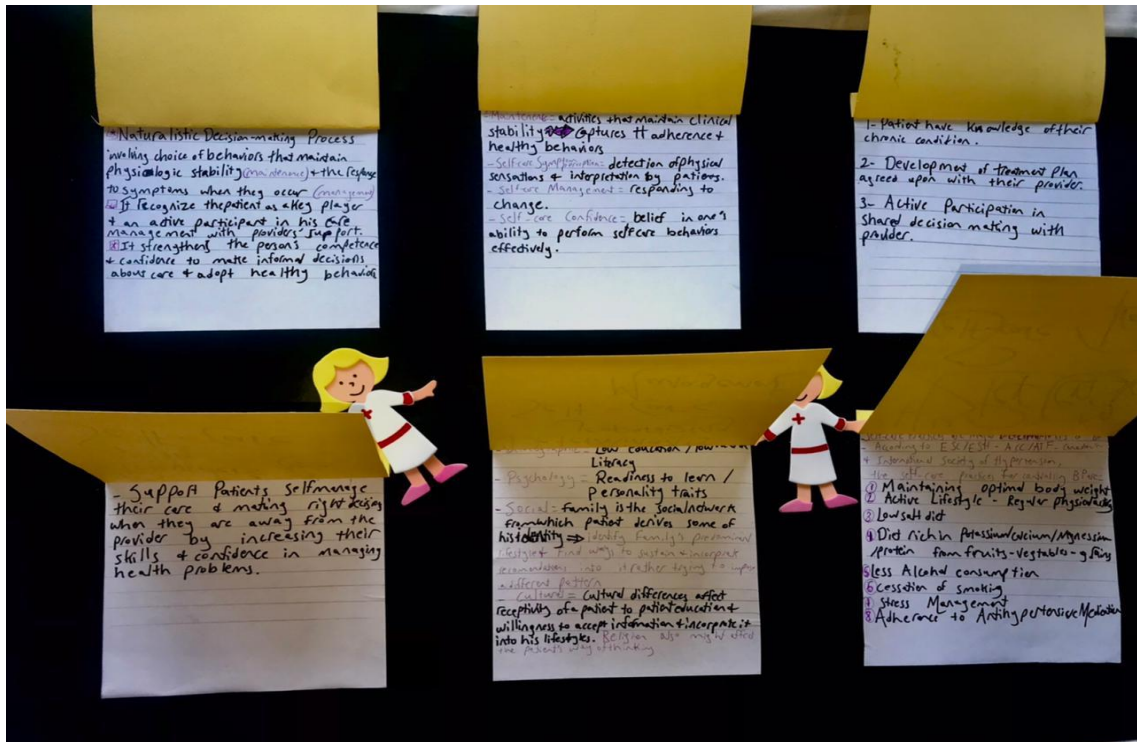 Naturalistic Decision-making Process
involving choice of behaviors that maintain
physiologic stability (maintenance) & the response
to symptoms when they occur (management)
It recognize the patient as a key player
& an active participant in his care
management with providers' support.
It strengthens the person's competence
& confidence to make informal decisions
about care & adopt healthy behaviors
Maintenance = activities that maintain clinical
stability Captures tt adherence &
healthy behaviors
- Selfcare Symptom = detection of physical
sensations & interpretation by patients.
- Selfcare Management = responding to
change.
- Self-care Confidence = belief in one's
ability to perform selfcare behaviors
effectively.
1- Patient have knowledge of their
chronic condition.
2- Development of treatment plan
agreed upon with their provider.
3- Active Participation in
shared decision making with
provider.
- Support Patients selfmanage
their care & making right decision
when they are away from the
provider by increasing their
skills & confidence in managing
health problems.
Low Education / low
Literacy
- Psychology = Readiness to learn /
Personality traits
- Social = Family is the Social network
from which patient derives some of
his identity ⇒ Identify Family's predominant
lifestyle & find ways to sustain & incorprate
recomendations into it rather trying to impose
a different pattern
- Cultural = Cultural differences affect
receptivity of a patient to patient education &
willingness to accept information & incorprate it
into his lifestyles. Religion also might affect
the patient's way of thinking
- According to ESC/ESH - ACC/AHA
& International Society of Hypertension,
the selfcare practices for controlling BP are:
① Maintaining optimal body weight
② Active Lifestyle - Regular physical activity
③ Low salt diet
④ Diet rich in Potassium/calcium/Magnesium
/protein from fruits - vegtables - grains
⑤ Less Alcohol consumption
⑥ Cessation of smoking
⑦ Stress Management
⑧ Adherence to Antihypertensive Medication